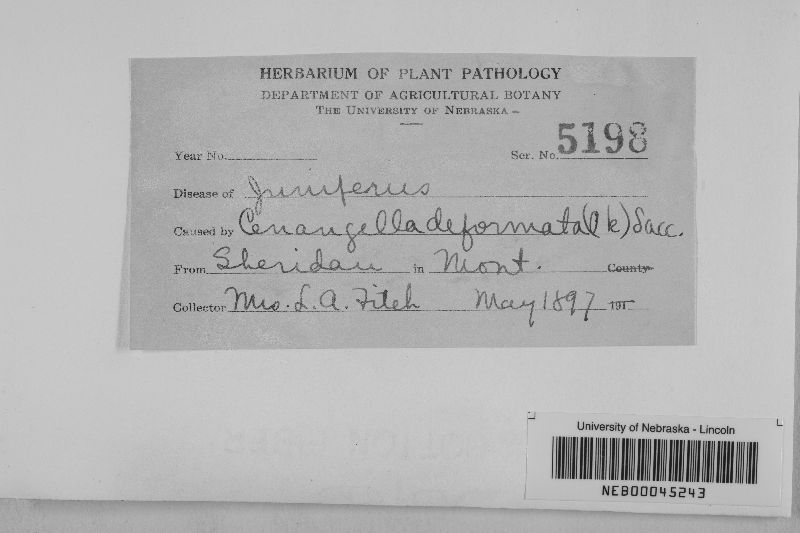 HERBARIUM OF PLANT PATHOLOGY
DEPARTMENT OF AGRICULTURAL BOTANY
THE UNIVERSITY OF NEBRASKA
Year No. Ser. No. 5198
Disease of Juniperus
Caused by Cenangella deformata (Pk) Sacc.
From Sheridan in Mont. County
Collector Mrs. L. A. Fitch May 1897 191
University of Nebraska - Lincoln
NEB00045243